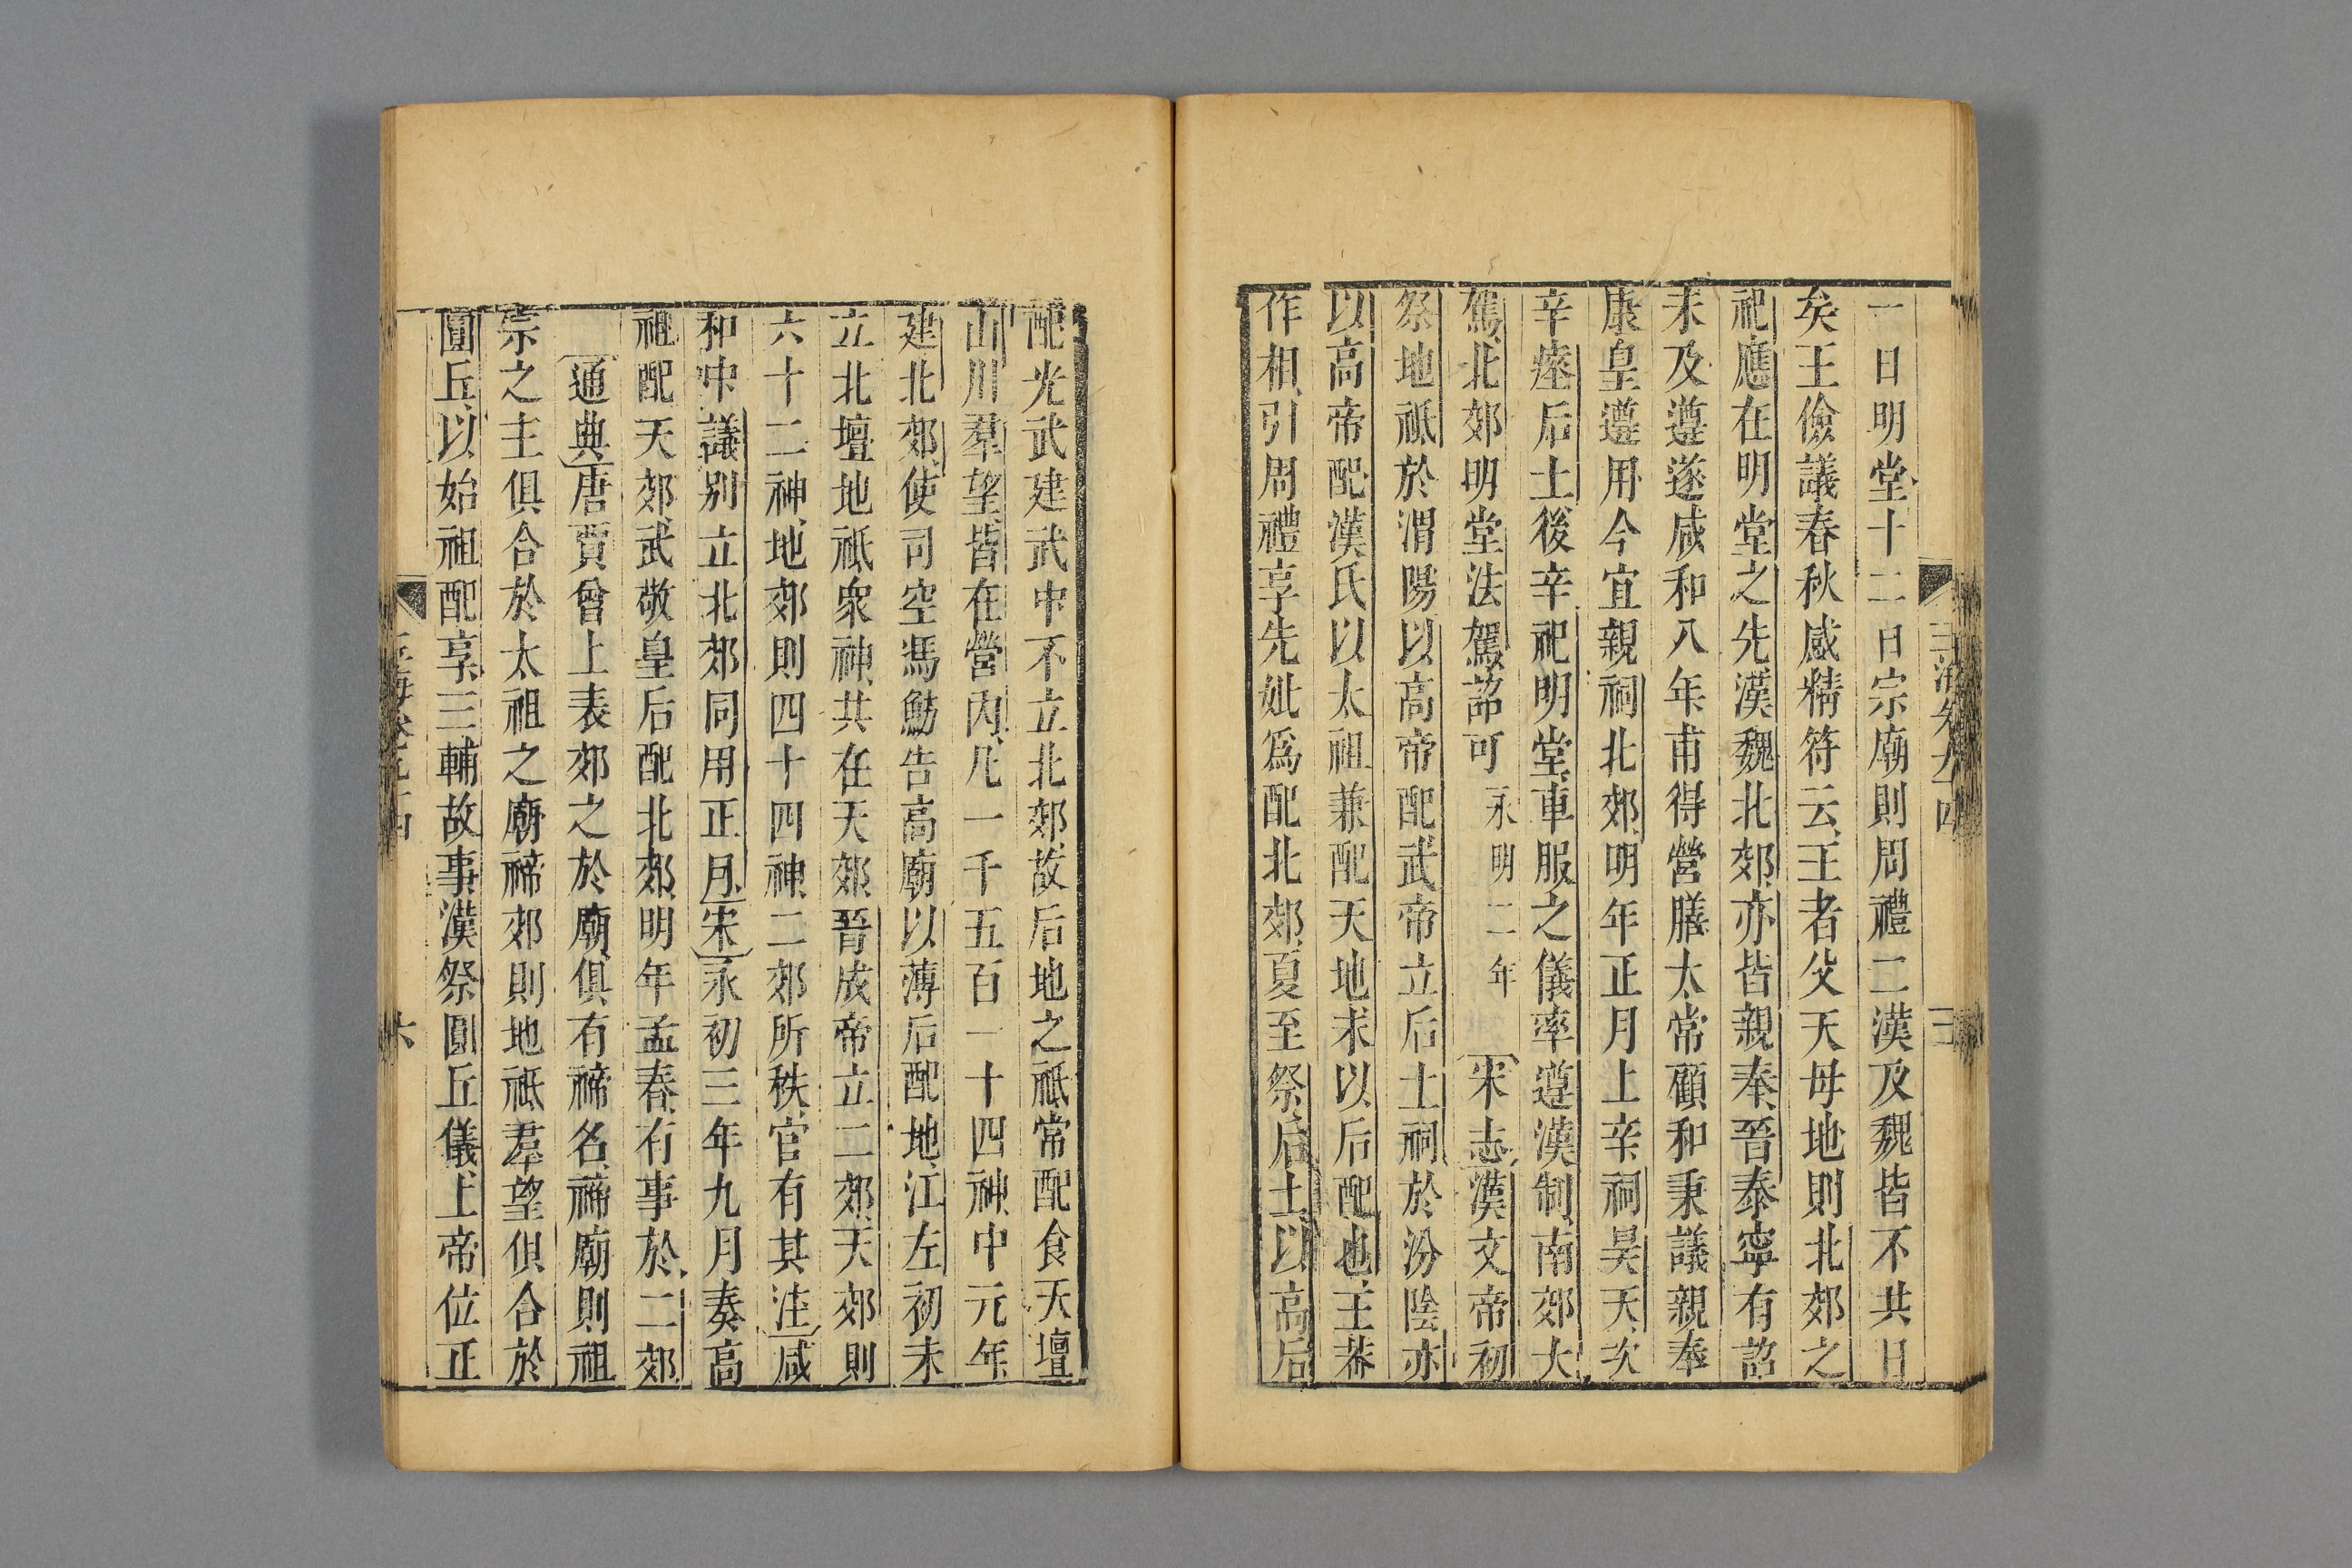 一日明堂十二日宗廟則周禮二漢及魏皆不共日
矣王儉議春秋感精符云王者父天母地則北郊之
祀應在明堂之先漢魏北郊亦皆親奉晉泰寧有詔
未及遵遂咸和八年甫得營膳太常顧和秉議親奉
康皇遵用今宜親祠北郊明年正月上辛祠昊天次
辛瘞后土後辛祀明堂車服之儀率遵漢制南郊大
駕北郊明堂法駕詔可永明二年宋志漢文帝初
祭地祗於渭陽以高帝配武帝立后土祠於汾陰亦
以高帝配漢氏以太祖兼配天地求以后配也王莽
作相引周禮享先妣爲配北郊夏至祭后土以高后
配光武建武中不立北郊故后地之祗常配食天壇
山川羣望皆在營內凡一千五百一十四神中元年
建北郊使司空馮魴告高廟以薄后配地江左初未
立北壇地祗衆神共在天郊晉成帝立二郊天郊則
六十二神地郊則四十四神二郊所秩官有其注咸
和中議別立北郊同用正月宋永初三年九月奏高
祖配天郊武敬皇后配北郊明年孟春有事於二郊
通典唐賈曾上表郊之於廟俱有禘名禘廟則祖
宗之主俱合於太祖之廟禘郊則地祗羣望俱合於
圓丘以始祖配享三輔故事漢祭圓丘儀上帝位正
六